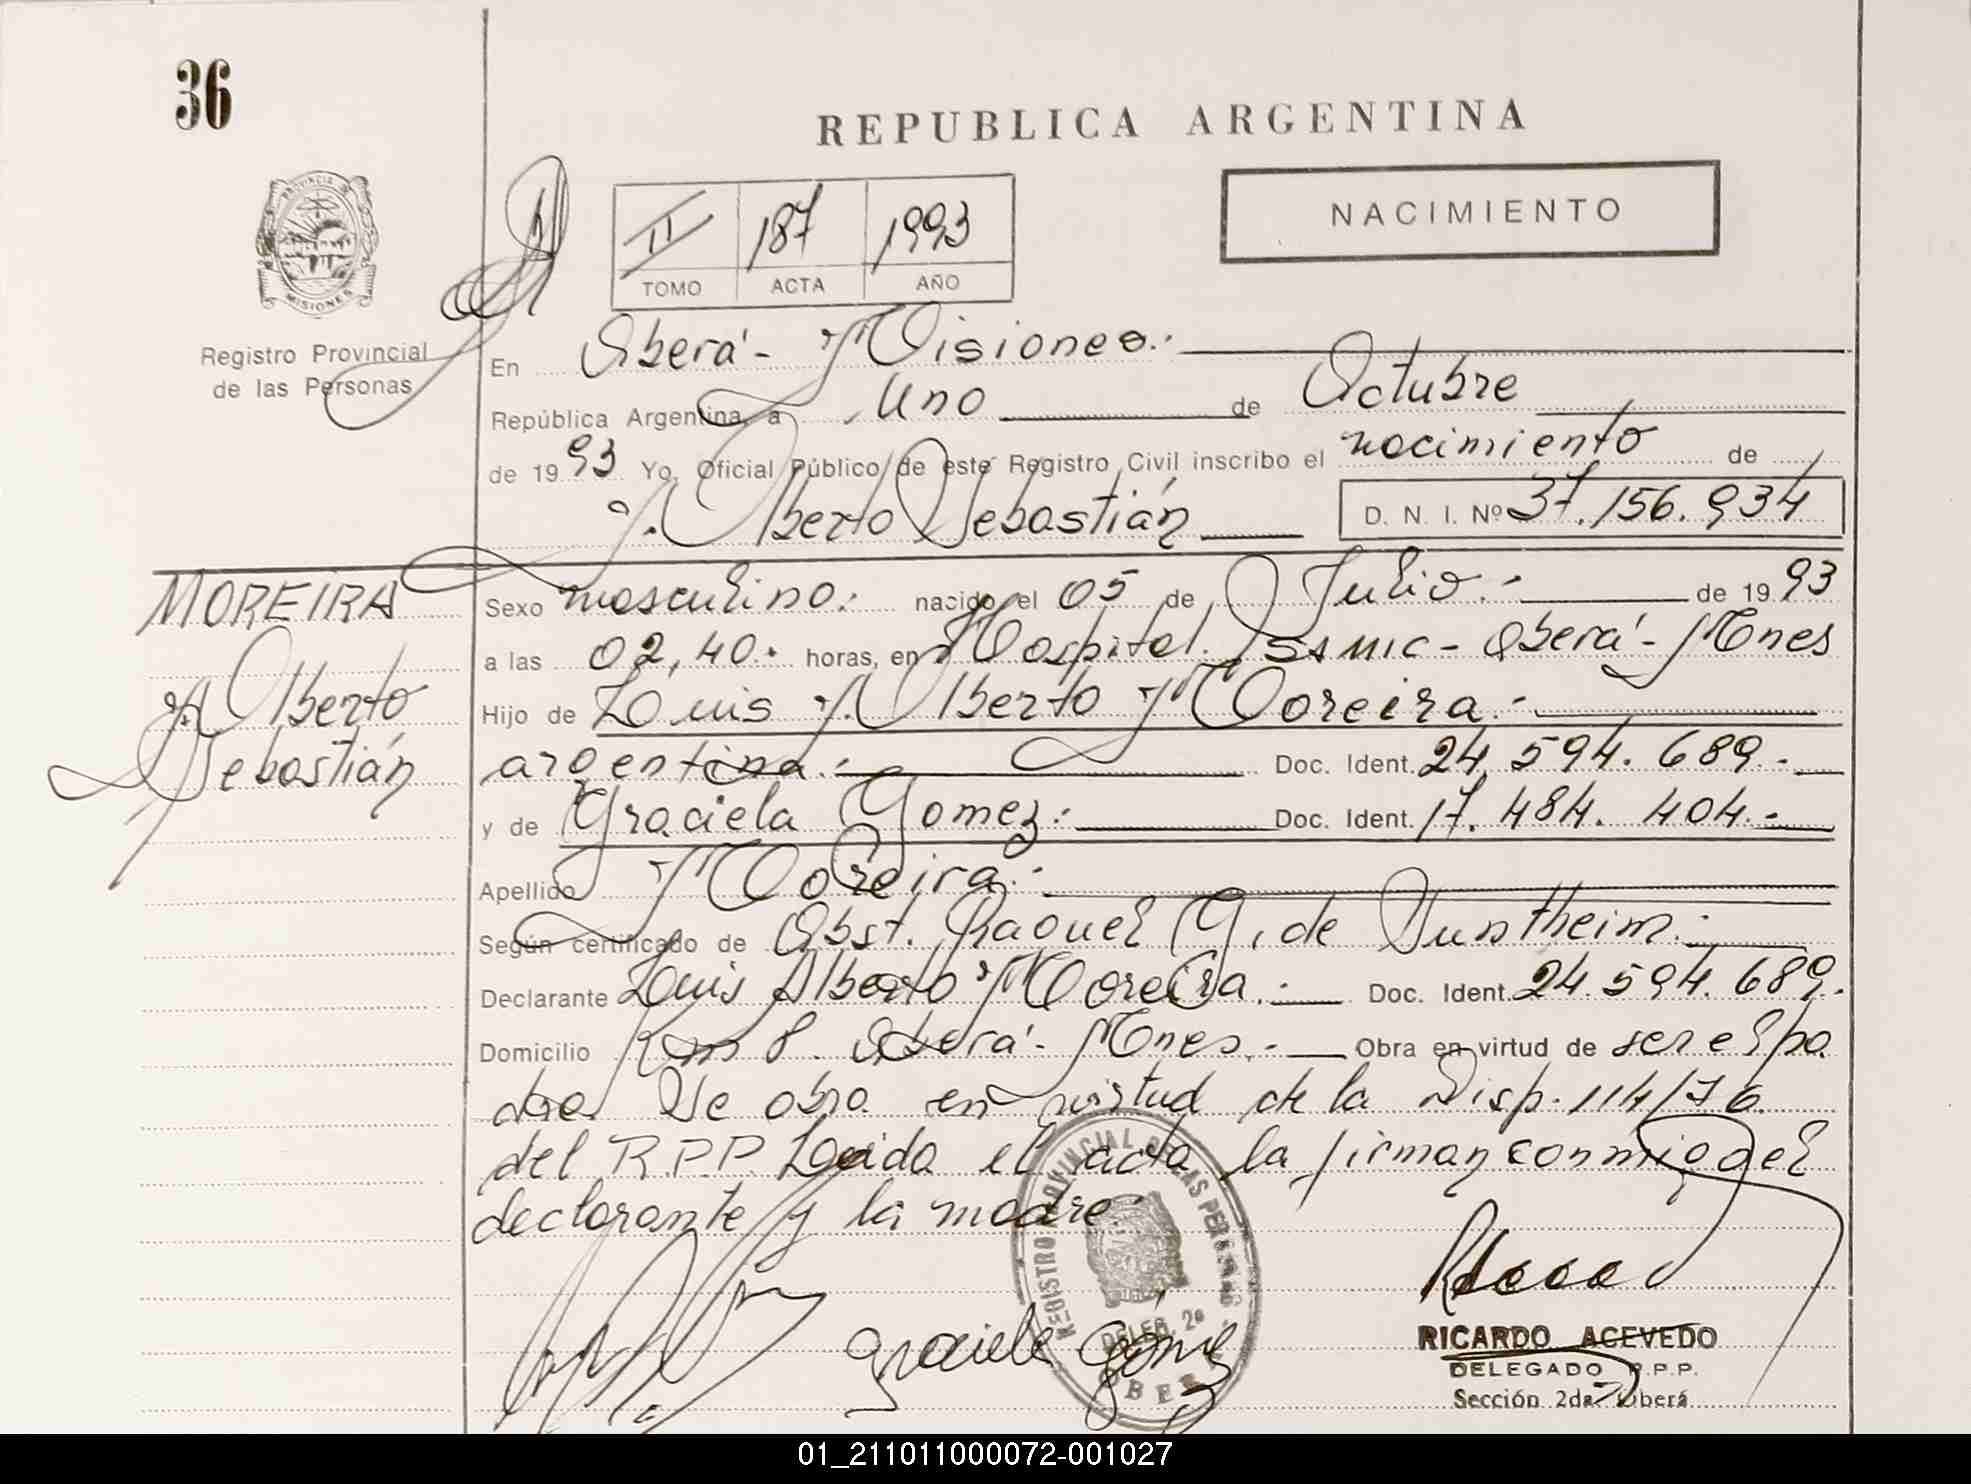 36
REPUBLICA ARGENTINA
NACIMIENTO
II 187 1993
TOMO ACTA AÑO
PROVINCIA DE
MISIONES
Registro Provincial
de las Personas
En Oberá - Misiones.-
República Argentina, a Uno de Octubre
de 1993 Yo, Oficial Público de este Registro Civil inscribo el nacimiento de
Alberto Sebastián D. N. I. Nº 37.156.934
MOREIRA
Alberto
Sebastián
Sexo masculino.- nacido el 05 de Julio.- de 1993
a las 02,40.- horas, en Hospital. Ssmic - Oberá - Mnes
Hijo de Luis Alberto Moreira.-
argentina.- Doc. Ident. 24.594.689.-
y de Graciela Gomez.- Doc. Ident. 17.484.404.-
Apellido Moreira.-
Según certificado de Obst. Raquel G. de
Declarante Luis Alberto Moreira.- Doc. Ident. 24.594.689.
Domicilio Km 8. Oberá - Mnes.- Obra en virtud de ser el pa
dre. Se obra en virtud de la Disp. 114/76
del R.P.P. Leida el acta la firman conmigo el
declarante y la madre.
REGISTRO PROVINCIAL DE LAS PERSONAS
DELEG. 2ª
Graciela Gómez
RICARDO ACEVEDO
DELEGADO R.P.P.
Sección 2da. Oberá
01_211011000072-001027